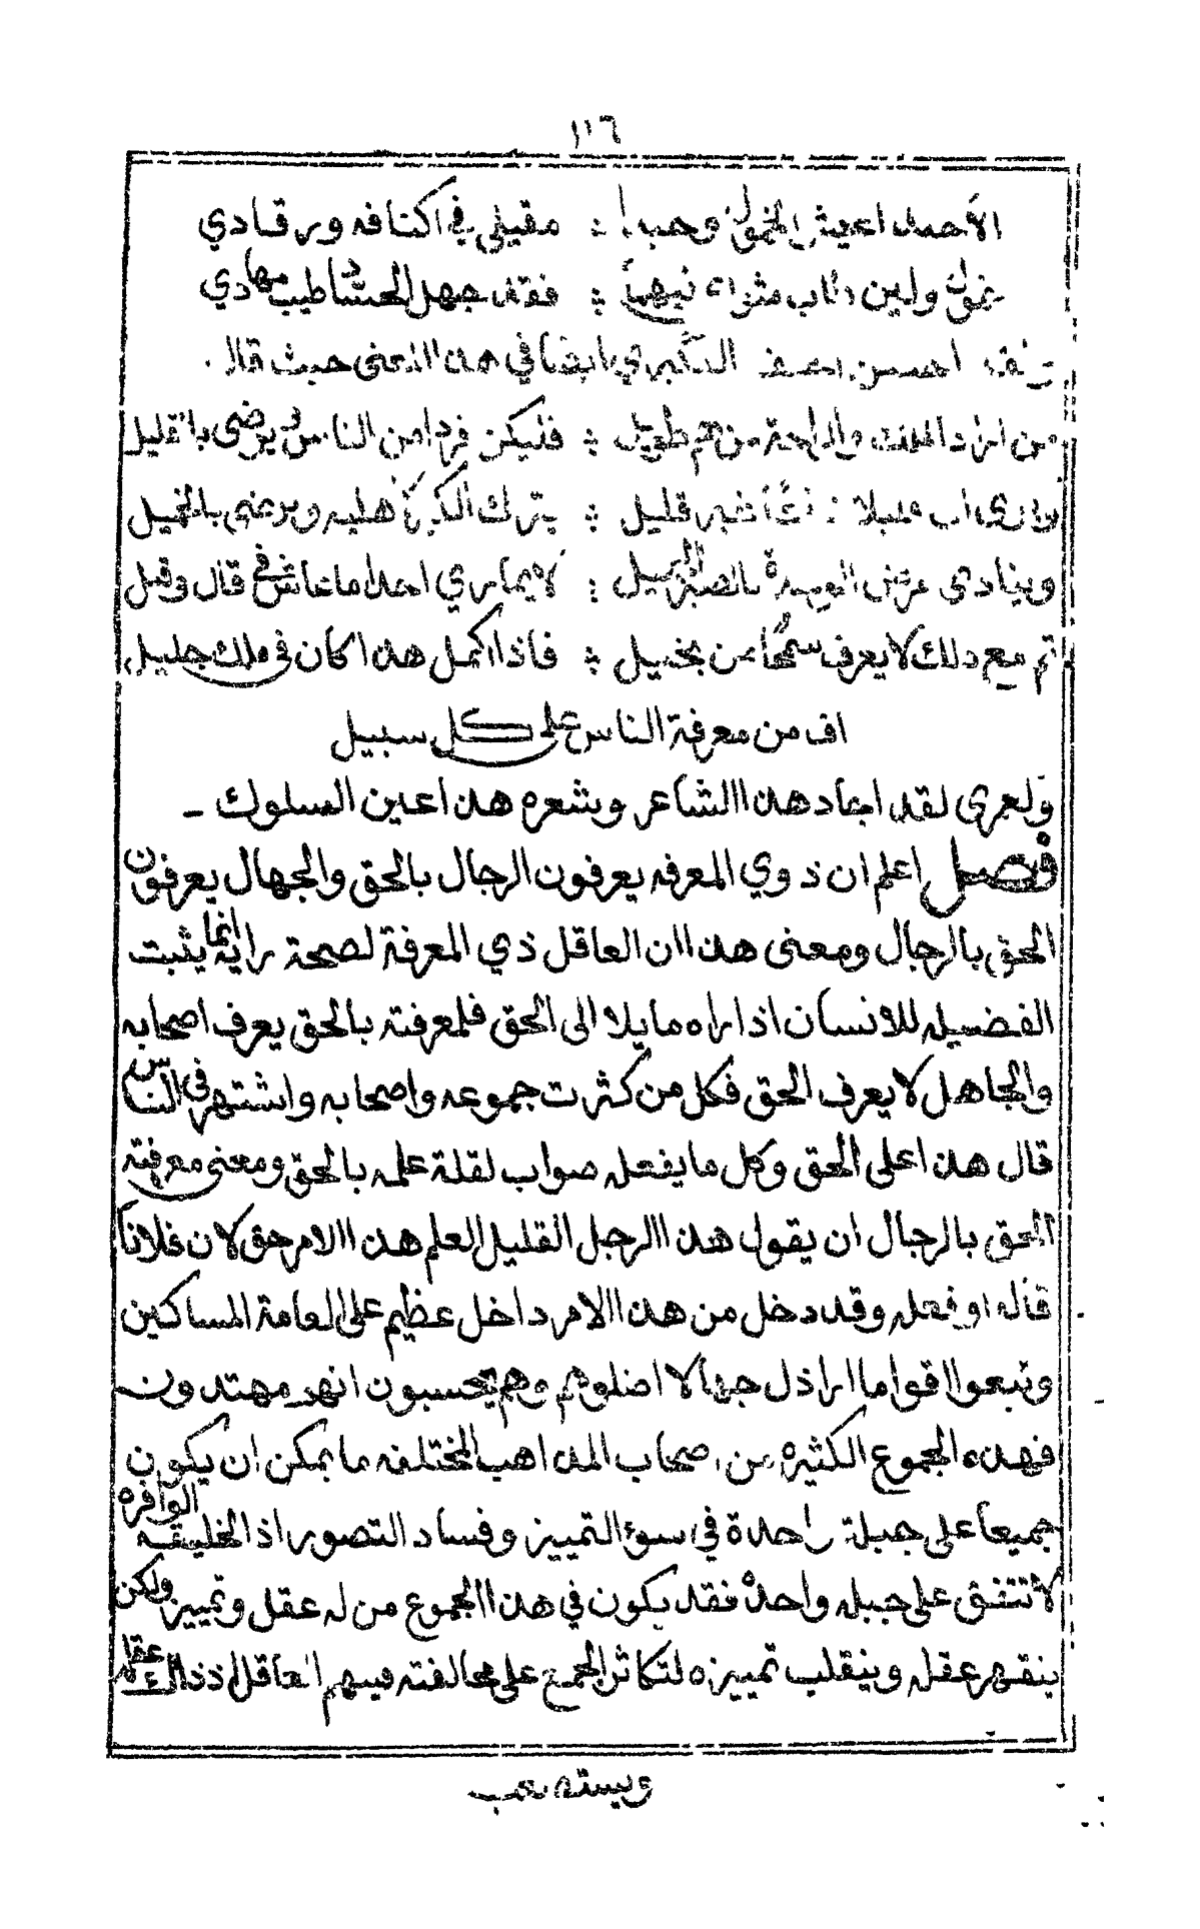 ١١٦
مقيلي في اكنافه ورقادي
فقد جهل الحساد طيب مهادي
احسن ايضا في هذا المعنى حيث قال
طويل ؞ فليكن فردا من الناس ويرضى بالقليل
قليل ؞ يترك الكبر لاهليه ويرضى بالخميل
وينادي احدا ما عاش في قال وقيل
ثم مع ذلك لا يعرف سمحا من بخيل ؞ فاذا اكمل هذا كان في ملك جليل
اف من معرفة الناس على كل سبيل
ولعمرى لقد اجاد هذا الشاعر وشعره هذا عين السلوك ـ
فصل اعلم ان ذوي المعرفه يعرفون الرجال بالحق والجهال يعرفون
الحق بالرجال ومعنى هذا ان العاقل ذي المعرفة لصحة رايه انما يثبت
الفضيله للانسان اذا راه مايلا الى الحق فلمعرفته بالحق يعرف اصحابه
والجاهل لا يعرف الحق فكل من كثرت جموعه واصحابه واشتهر في الناس
قال هذا على الحق وكل ما يفعله صواب لقلة علمه بالحق ومعنى معرفته
الحق بالرجال ان يقول هذا الرجل القليل العلم هذا الامر حق لان فلاناً
قاله او فعله وقد دخل من هذا الامر داخل عظيم على العامة المساكين
وتبعوا اقواما اراذل جهالا اضلوهم وهم يحسبون انهم مهتدون
فهذه الجموع الكثيره من اصحاب المذاهب المختلفه ما يمكن ان يكون
جميعا على جبلة واحدة في سوء التمييز وفساد التصور اذ الخليقه الوافره
لا تتفق على جبله واحدة فقد يكون في هذا المجموع من له عقل وتمييز ولكن
ينقهر عقله وينقلب تمييزه لتكاثر الجمع على مخالفته فيبهم العاقل اذ ذاك عقله